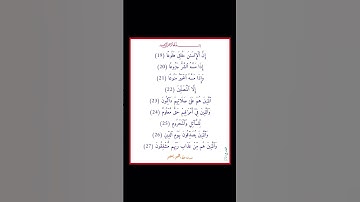 إِنَّ الْإِنْسَانَ خُلِقَ هَلُوعًا (19)
إِذَا مَسَّهُ الشَّرُّ جَزُوعًا (20)
وَإِذَا مَسَّهُ الْخَيْرُ مَنُوعًا (21)
إِلَّا الْمُصَلِّينَ (22)
الَّذِينَ هُمْ عَلَى صَلَاتِهِمْ دَائِمُونَ (23)
وَالَّذِينَ فِي أَمْوَالِهِمْ حَقٌّ مَعْلُومٌ (24)
لِلسَّائِلِ وَالْمَحْرُومِ (25)
وَالَّذِينَ يُصَدِّقُونَ بِيَوْمِ الدِّينِ (26)
وَالَّذِينَ هُمْ مِنْ عَذَابِ رَبِّهِمْ مُشْفِقُونَ (27)